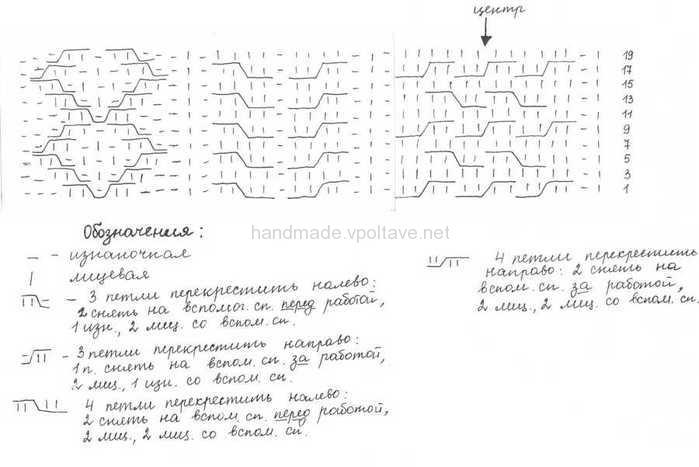 центр
19
17
15
13
11
9
7
5
3
1
handmade.vpoltave.net
Обозначения:
— - изнаночная
| лицевая
- 3 петли перекрестить налево:
2 снять на вспомог. сп. перед работой,
1 изн., 2 лиц. со вспом. сп.
- 3 петли перекрестить направо:
1 п. снять на вспом. сп. за работой,
2 лиц., 1 изн. со вспом. сп.
4 петли перекрестить налево:
2 снять на вспом. сп. перед работой,
2 лиц., 2 лиц. со вспом. сп.
4 петли перекрестить
направо: 2 снять на
вспом. сп. за работой,
2 лиц., 2 лиц. со вспом. сп.